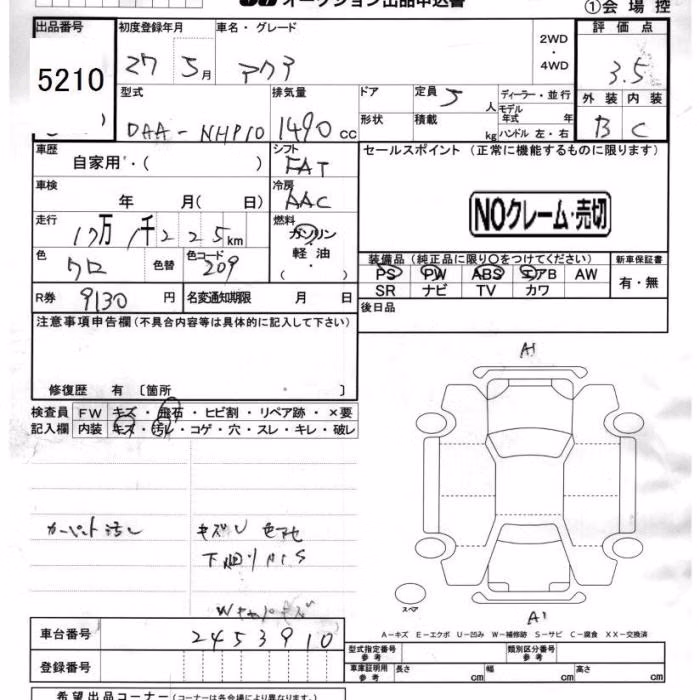 オークション出品申込書 ①会場控
出品番号 初度登録年月 車名・グレード 2WD ・4WD 評価点
5210 27 5月 アクア 3.5
型式 排気量 ドア 定員 5 人 ディーラー・並行 外装 内装
モデル年式 年式
DAA-NHP10 1490cc 形状 積載 kg ハンドル 左・右 B C
車歴 シフト セールスポイント (正常に機能するものに限ります)
自家用・( ) FAT
車検 冷房
年 月( 日) AAC NOクレーム・売切
走行 燃料
17万 1千225km ガソリン
軽油
・( )
色 色替 色コード 装備品 (純正品に限り○をつけてください) 新車保証書
クロ 209 PS PW ABS エアB AW 有・無
SR ナビ TV カワ
R券 9130円 名変通知期限 月 日 後日品
注意事項申告欄 (不具合内容等は具体的に記入して下さい)
A1
修復歴 有 〔箇所 〕
検査員 FW キズ・飛石・ヒビ割・リペア跡・×要
記入欄 内装 キズ・汚レ・コゲ・穴・スレ・キレ・破レ
カーペット汚レ キズU 色アセ
下回りサビS
スペア
A1
A-キズ E-エクボ U-凹み W-補修跡 S-サビ C-腐食 XX-交換済
車台番号 2453910 型式指定番号 参考 類別区分番号 参考
登録番号 車庫証明用 参考 長さ cm 幅 cm 高さ cm
希望出品コーナー (コーナーは各会場により異なります)